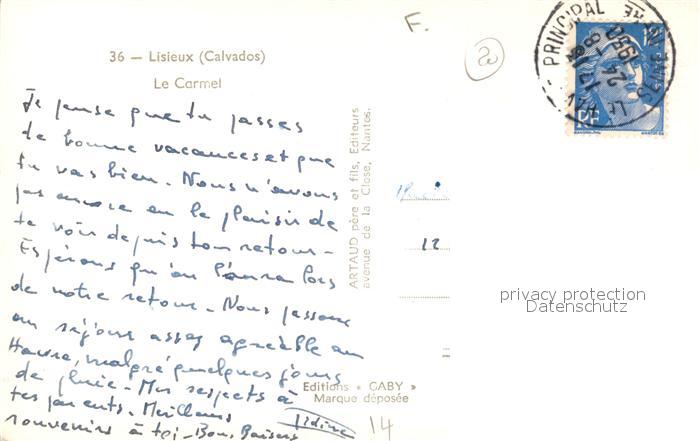 F.
20
36 — Lisieux (Calvados)
Le Carmel
Je pense que tu passes
de bonne vacances et que
tu vas bien. Nous n'avons
pas encore eu le plaisir de
te voir depuis ton retour -
Espérons qu'on l'aura lors
de notre retour. Nous passons
un séjour assez agréable au
Havre, malgré quelques jours
de pluie - Mes respects à
tes parents. Meilleurs
souvenirs à toi - Bons Baisers
ARTAUD père et fils, Editeurs
avenue de la Close, Nantes.
Editions « GABY »
Marque déposée
14
12
PRINCIPAL
LE HAVRE
24 - 8
1950
RF
privacy protection
Datenschutz